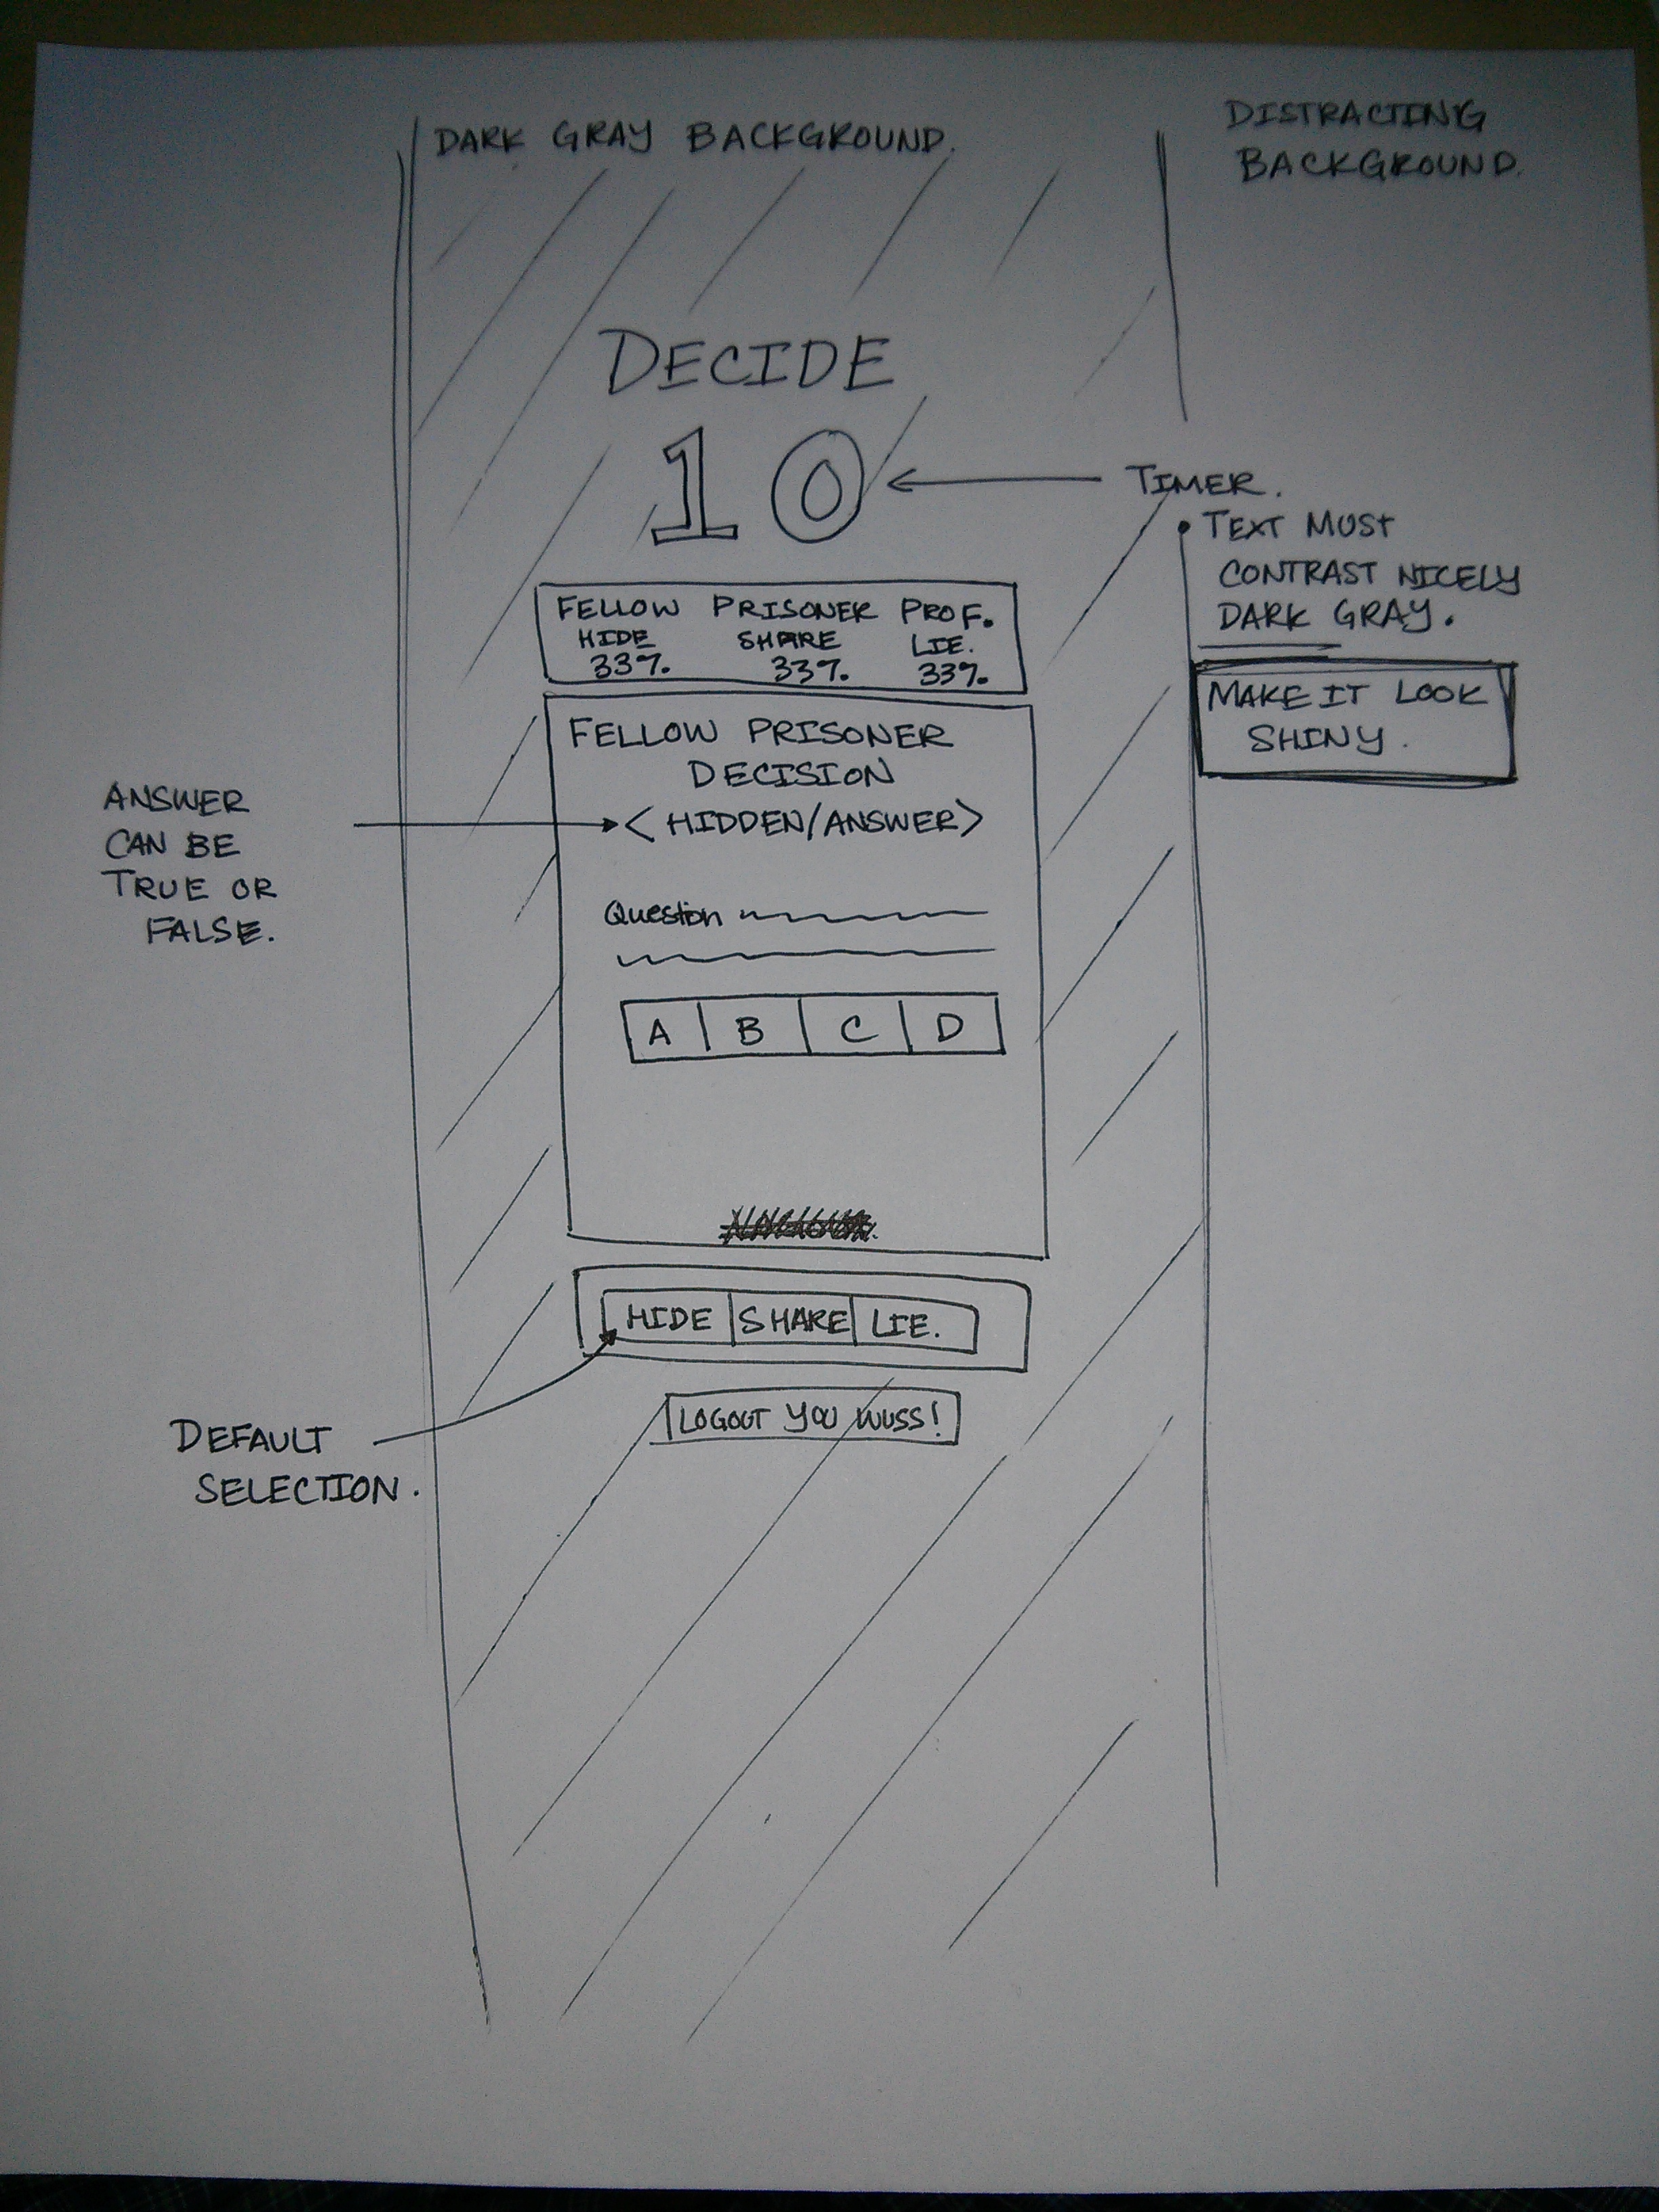 DARK GRAY BACKGROUND.
DISTRACTING
BACKGROUND.
DECIDE
10
TIMER.
• TEXT MUST
CONTRAST NICELY
DARK GRAY.
MAKE IT LOOK
SHINY.
FELLOW PRISONER PROF.
HIDE SHARE LIE.
33% 33% 33%
FELLOW PRISONER
DECISION
< HIDDEN/ANSWER>
ANSWER
CAN BE
TRUE OR
FALSE.
Question
A B C D
HIDE SHARE LIE.
DEFAULT
SELECTION.
LOGOUT YOU WUSS!